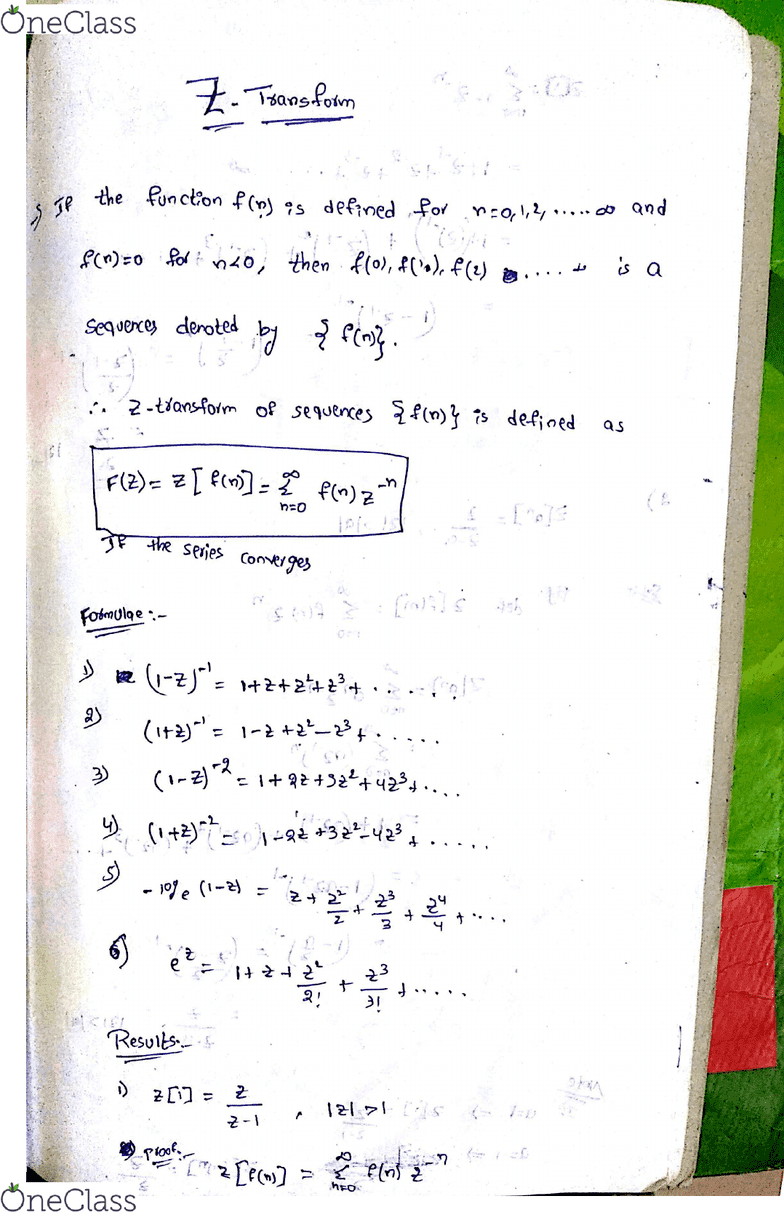 OneClass
Z-Transform
If the function f(n) is defined for n=0,1,2,.....∞ and
f(n)=0 for n<0, then f(0), f(1), f(2) .... is a
sequences denoted by {f(n)}.
∴ Z-transform of sequences {f(n)} is defined as
F(Z) = Z[f(n)] = ∑_{n=0}^{∞} f(n) z^{-n}
If the series converges
Formulae:-
1) (1-z)^{-1} = 1+z+z²+z³+......
2) (1+z)^{-1} = 1-z+z²-z³+.....
3) (1-z)^{-2} = 1+2z+3z²+4z³+....
4) (1+z)^{-2} = 1-2z+3z²-4z³+.....
5) -log_e (1-z) = z + z²/2 + z³/3 + z⁴/4 +....
6) e^z = 1+z+z²/2! + z³/3! +.....
Results:-
1) Z[1] = z/(z-1) , |z|>1
Proof:-
Z[f(n)] = ∑_{n=0}^{∞} f(n) z^{-n}
OneClass